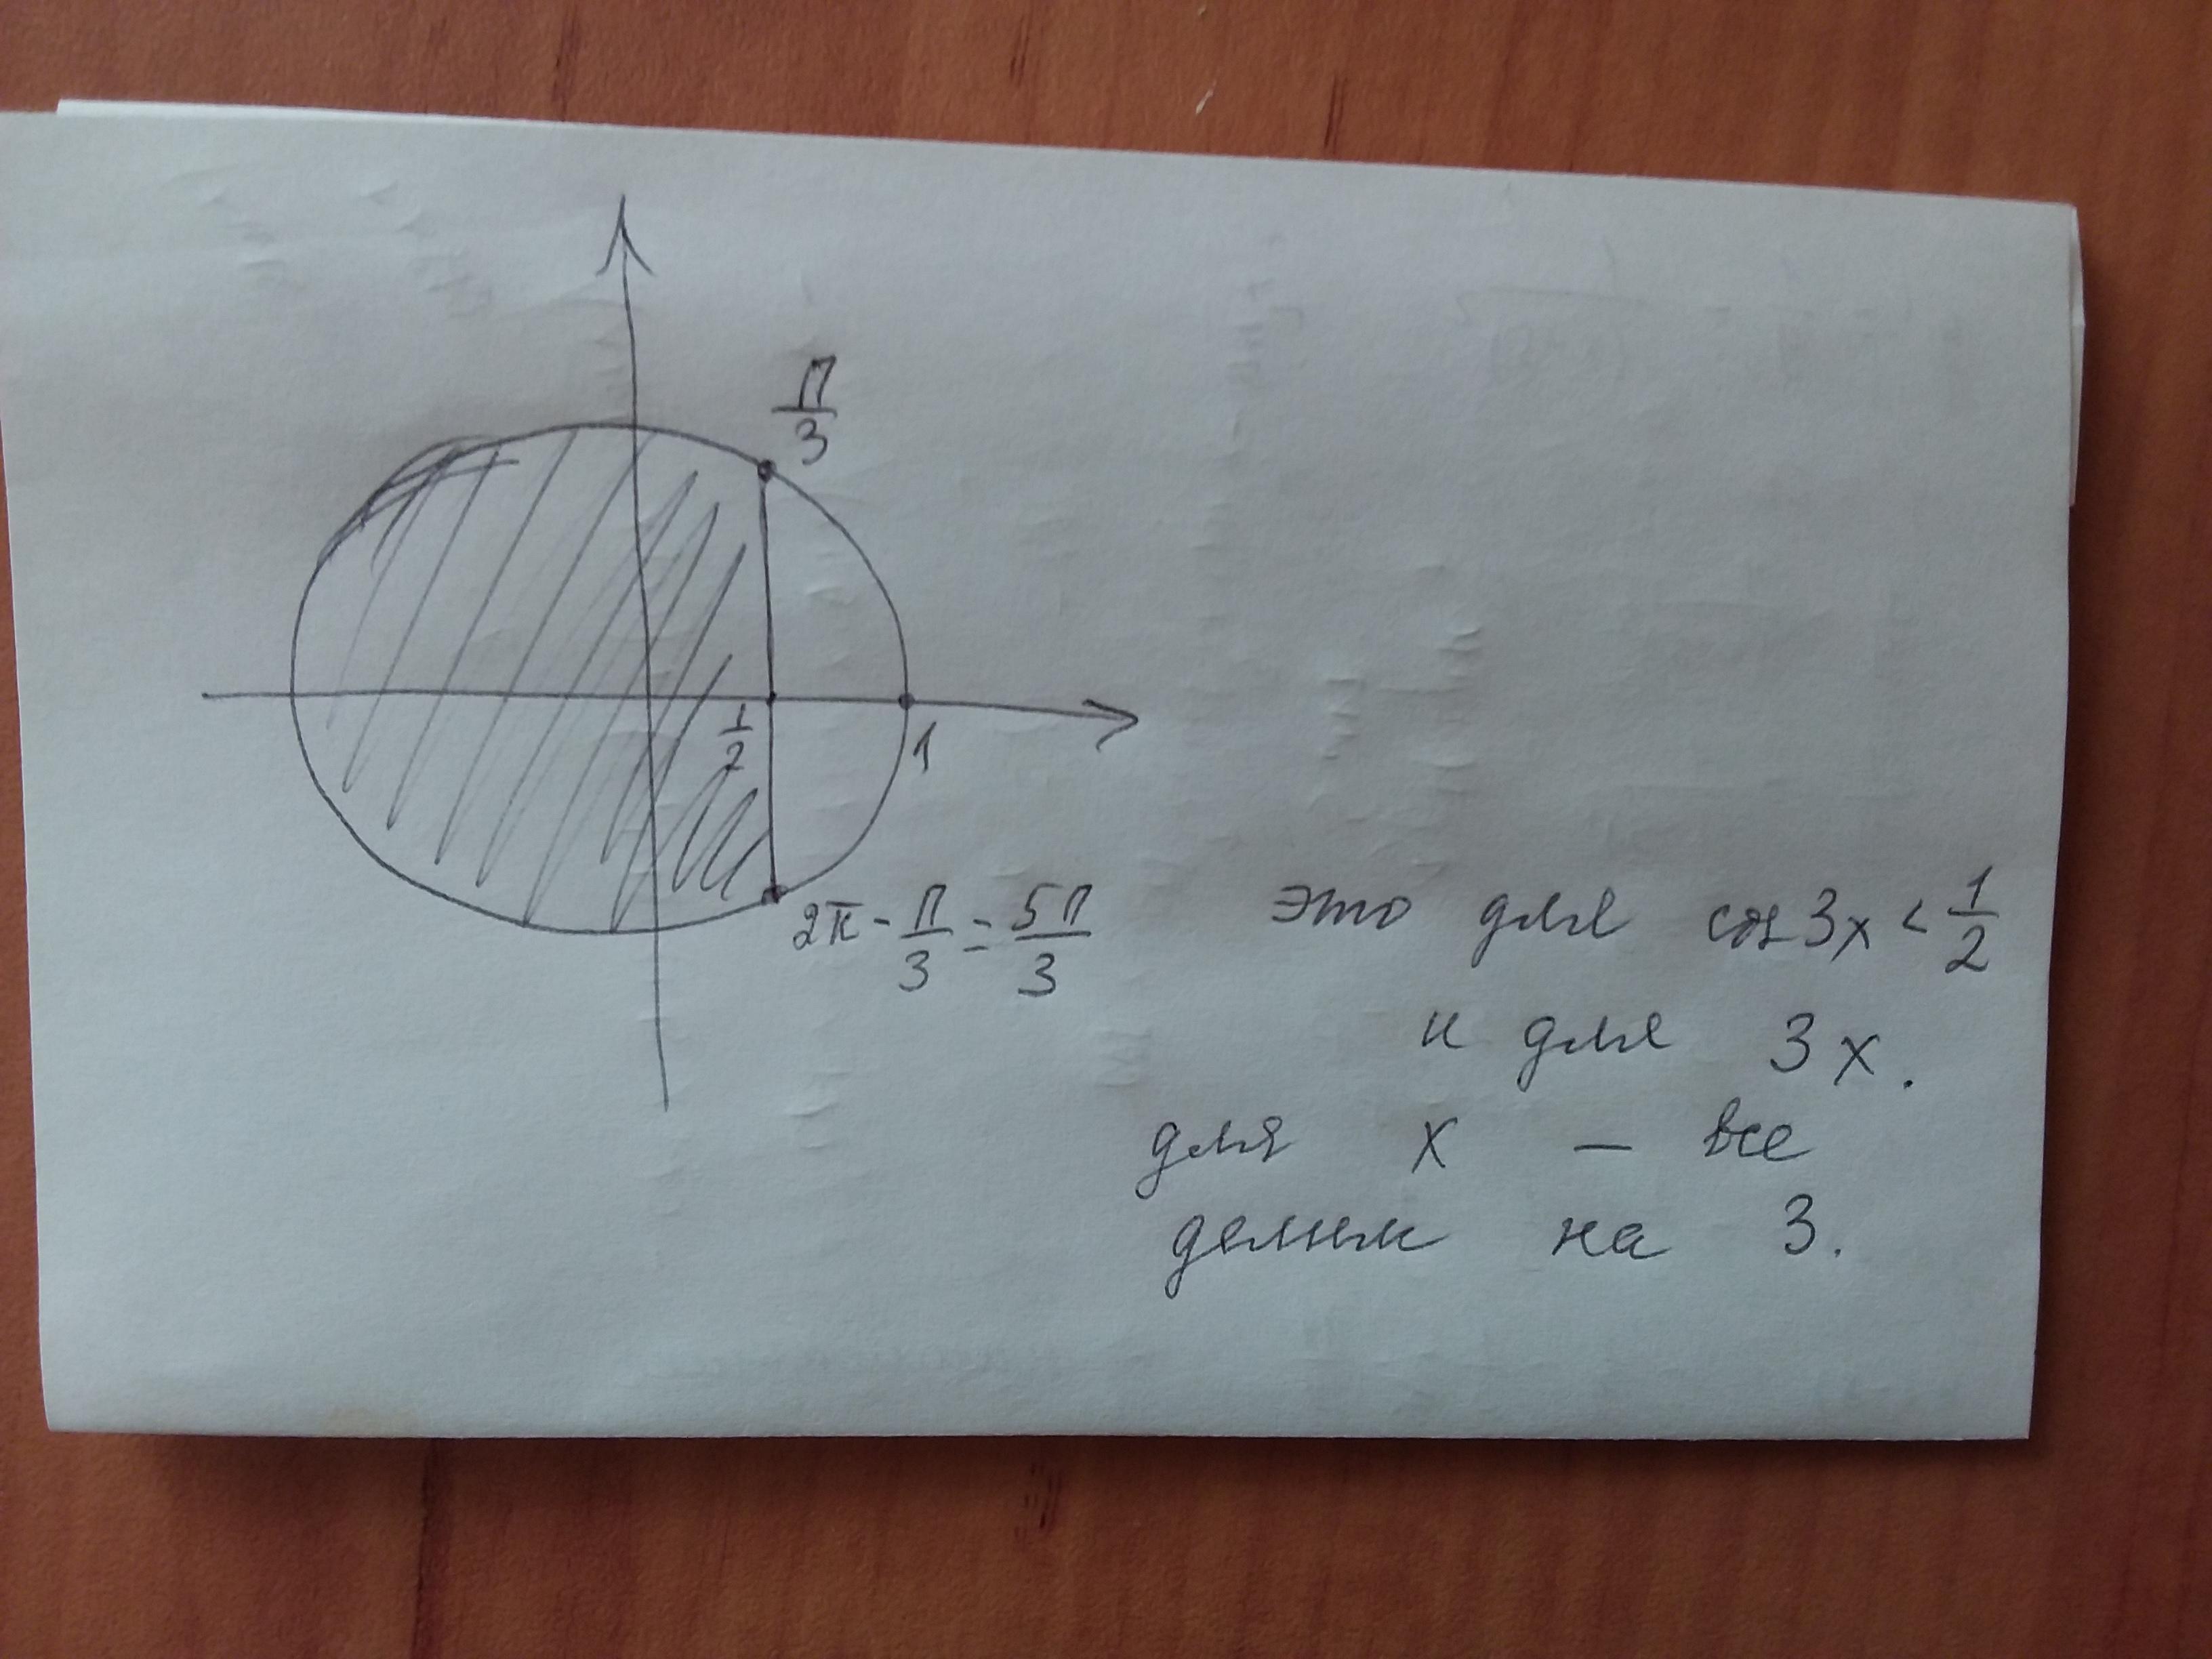 π/3
1/2
1
2π - π/3 = 5π/3
это для cos 3x < 1/2
и для 3x.
для x – все
делим на 3.